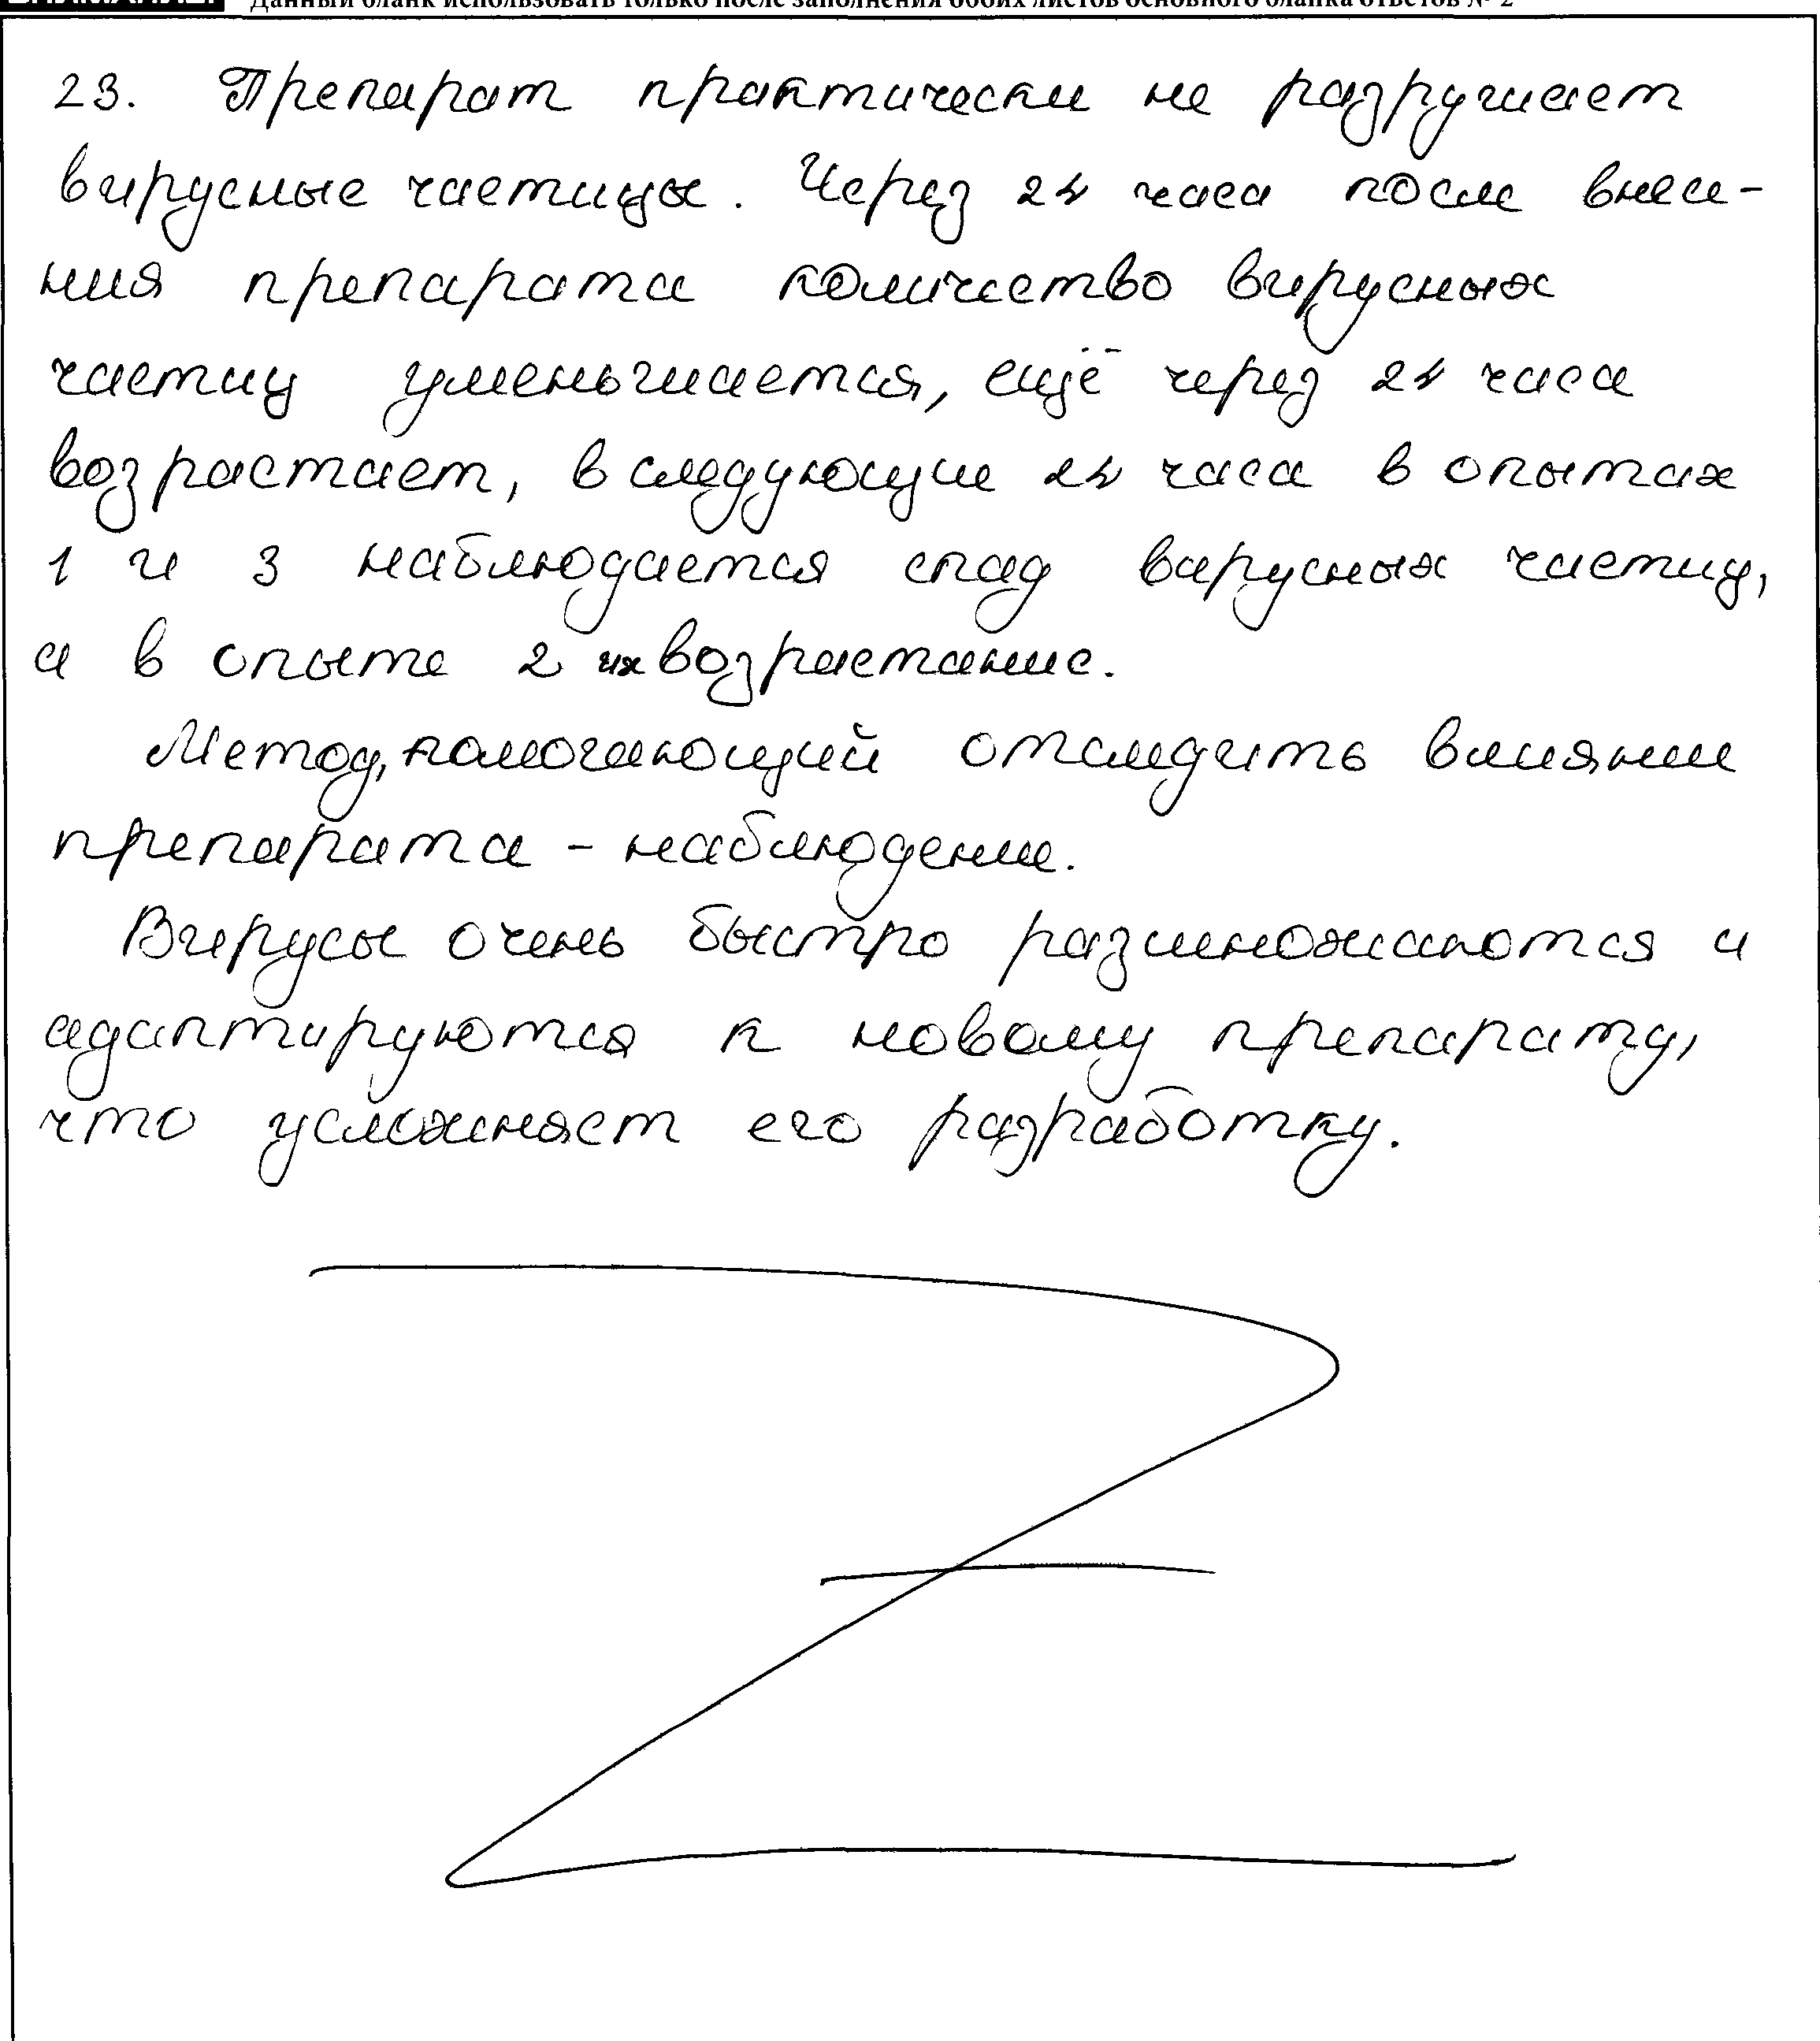 Данный бланк использовать только после заполнения обоих листов основного бланка ответов № 2
23. Препарат практически не разрушает
вирусные частицы. Через 24 часа после внесе-
ния препарата количество вирусных
частиц уменьшается, ещё через 24 часа
возрастает, в следующие 24 часа в опытах
1 и 3 наблюдается спад вирусных частиц,
а в опыте 2 их возрастание.
Метод, помогающий отследить влияние
препарата - наблюдение.
Вирусы очень быстро размножаются и
адаптируются к новому препарату,
что усложняет его разработку.